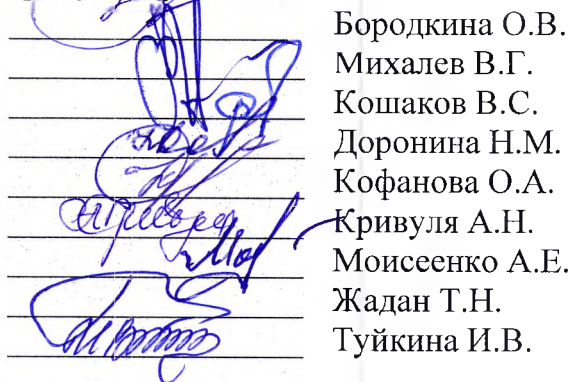 Бородкина О.В.
Михалев В.Г.
Кошаков В.С.
Доронина Н.М.
Кофанова О.А.
Кривуля А.Н.
Моисеенко А.Е.
Жадан Т.Н.
Туйкина И.В.